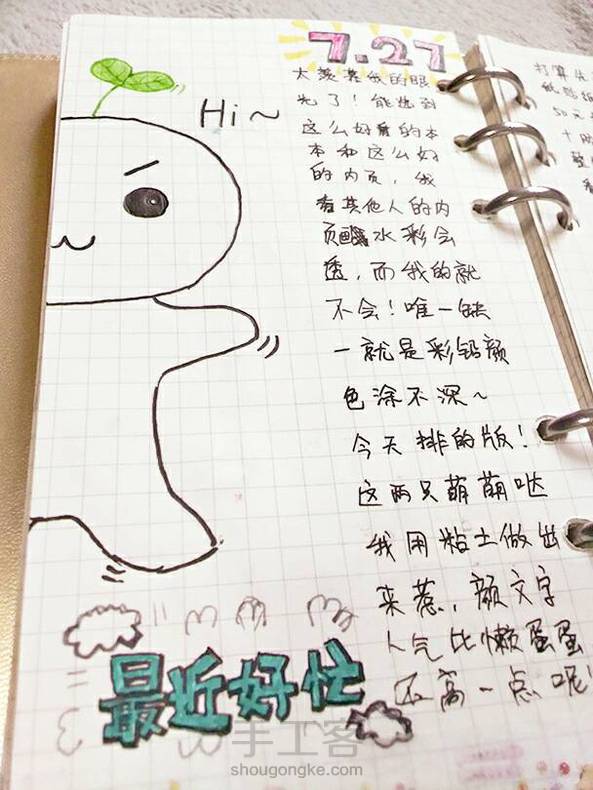 7.27
Hi~
太羡慕我的眼
光了！能选到
这么好看的本
本和这么好
的内页，我
看其他人的内
页画水彩会
透，而我的就
不会！唯一缺
一就是彩铅颜
色涂不深~
今天排的版！
这两只萌萌哒
我用粘土做出
来惹，颜文字
人气比懒蛋蛋
还高一点呢！
最近好忙
打算先
50元
手工客
shougongke.com